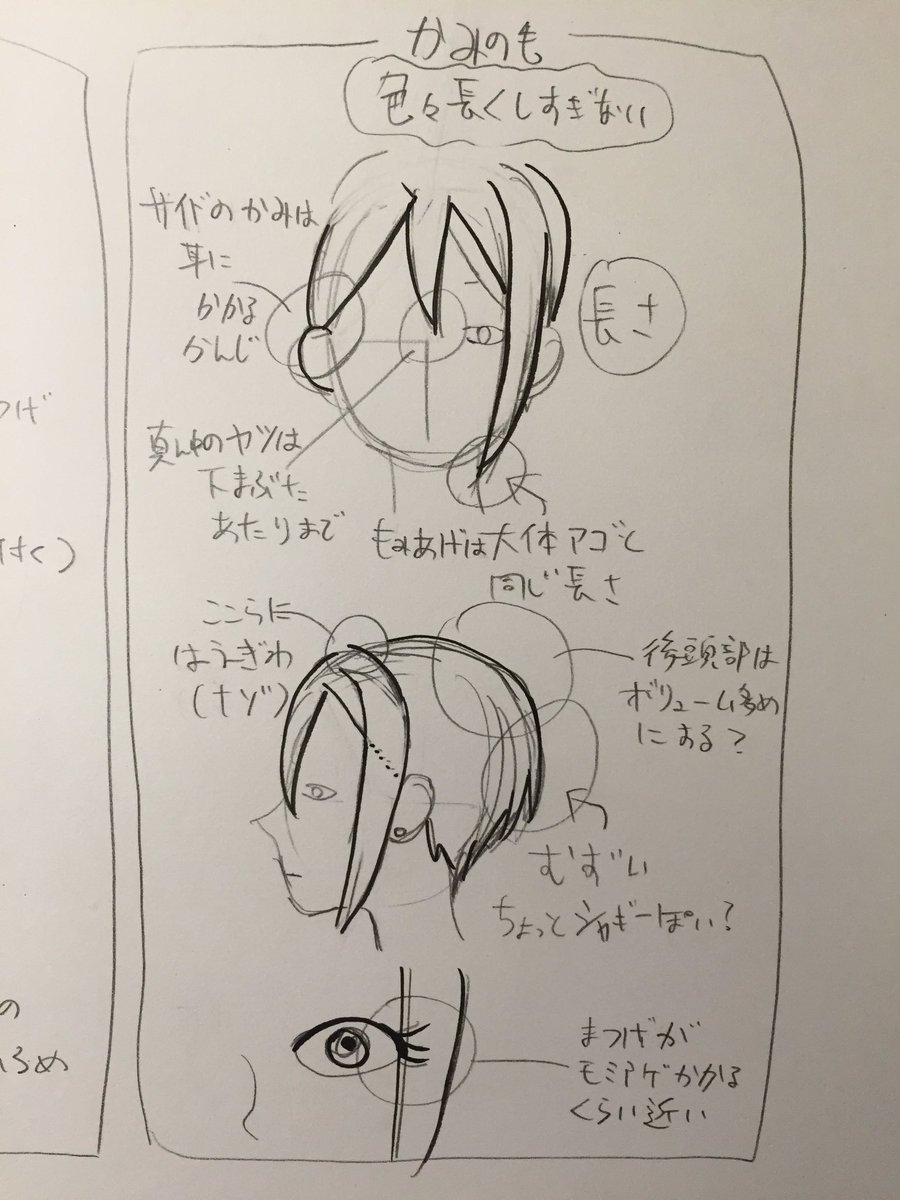 かみのも
色々長くしすぎない
サイドのかみは
耳に
かかる
かんじ
長さ
真ん中のヤツは
下まぶた
あたりまで
もみあげは大体アゴと
同じ長さ
ここらに
はえぎわ
(ナゾ)
後頭部は
ボリューム多め
にある?
むずい
ちょっとシャギーぽい?
まつげが
モミアゲかかる
くらい近い
つげ
の